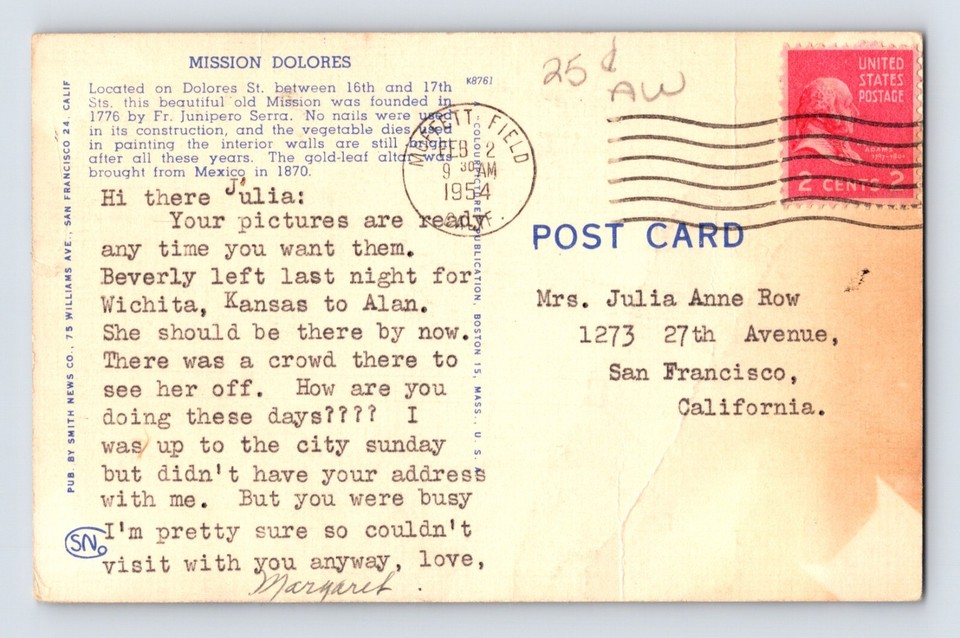 MISSION DOLORES
Located on Dolores St. between 16th and 17th
Sts. this beautiful old Mission was founded in
1776 by Fr. Junipero Serra. No nails were used
in its construction, and the vegetable dies used
in painting the interior walls are still bright
after all these years. The gold-leaf altar was
brought from Mexico in 1870.
K8761
PUB. BY SMITH NEWS CO., 75 WILLIAMS AVE., SAN FRANCISCO 24, CALIF
Hi there Julia:
Your pictures are ready
any time you want them.
Beverly left last night for
Wichita, Kansas to Alan.
She should be there by now.
There was a crowd there to
see her off. How are you
doing these days???? I
was up to the city sunday
but didn't have your address
with me. But you were busy
I'm pretty sure so couldn't
visit with you anyway, love,
Margaret.
SN
PUBLICATION, BOSTON 15, MASS., U. S. A.
25¢
AW
MOFFETT FIELD
FEB 2
9 30 AM
1954
CALIF.
UNITED
STATES
POSTAGE
ADAMS
2 CENTS 2
POST CARD
Mrs. Julia Anne Row
1273 27th Avenue,
San Francisco,
California.